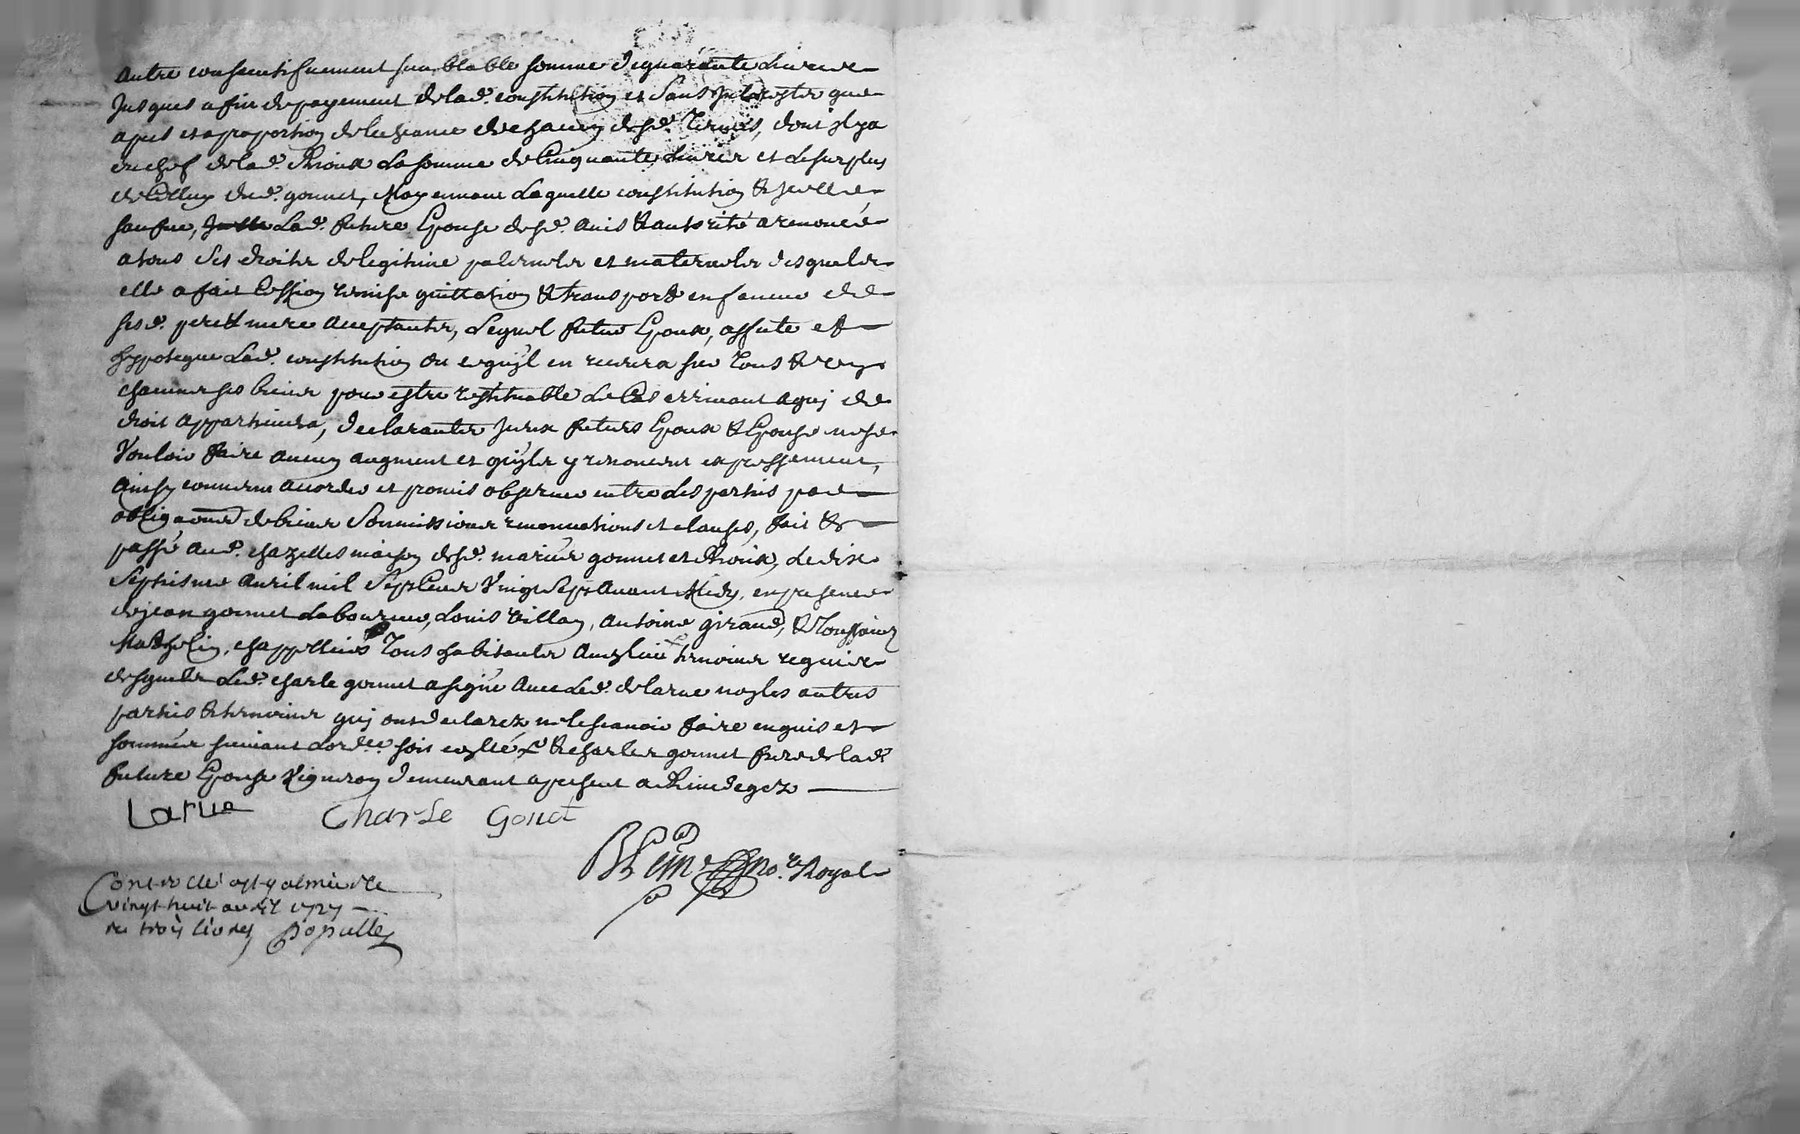 autre consecutifuement semblable somme de quarante livres
jusques a fin de payement de lad.e constitution et sans interestz que
apres et a proportion de lecheance de chacun desd. termes, dont il y a
du chef de lad.e Rioux la somme de cinquante livres et le surplus
de celluy dud. gonnet, Moyennant laquelle constitution & icelle
saufue, lad.e future Epouse desd. avis & autorité a renoncé
a tous ses droits de legitime paternels et maternels desquels
elle a fait cession remise quittation & transport en faveur de
sesd. pere & mere acceptants, Lequel futur Epoux, assure et
hypoteque lad.e constitution ou ce quil en recevra sur tous & uns
chacuns ses biens pour estre restituable le cas arrivant a qui de
droit appartiendra, declarants iceux futurs Epoux & Epouse ne se
vouloir faire aucun augment et quils y renoncent expressement,
ainsy convenu accordé et promis observer entre les parties par
obligaons de biens soumissions renonciations et clauses, fait &
passé aud. chazelles maison desd. mariés gonnet et Rioux, le dix
septiesme avril mil sept cens vingt sept avant Midy, en presence
de jean gonnet laboureur, Louis villan, antoine giraud, & Toussainct
Mathelin, chappelliers tous habitants aud. lieu temoins requis
desquels led. charle gonnet a signé avec led. delarue non les autres
parties & temoins qui ont declarez ne le scavoir faire enquis et
sommés suivant lord.ce soit controllé & charles gonnet frere de lad.
future Epouse vigneron demeurant a present a Rivedegez
Larue Charle Gonet
no.re Royal
Controllé a st galmier le
vingt huit avril 1727
re trois livres Populle